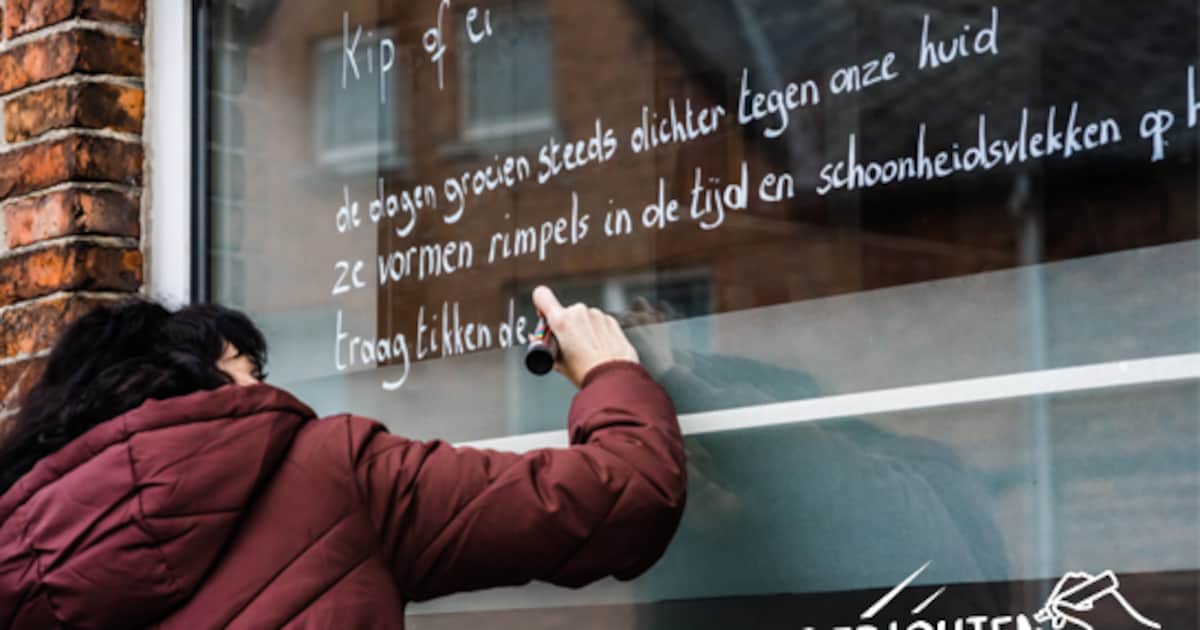 Kip of ei
de dagen groeien steeds dichter tegen onze huid
ze vormen rimpels in de tijd en schoonheidsvlekken op
traag tikken de